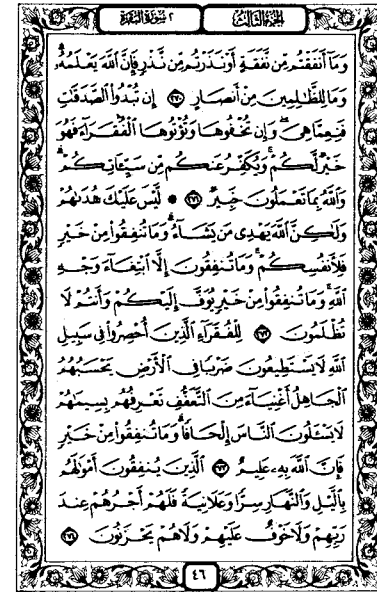 الجزء الثالث ٢ سورة البقرة
وَمَآ أَنفَقْتُم مِّن نَّفَقَةٍ أَوْ نَذَرْتُم مِّن نَّذْرٍ فَإِنَّ ٱللَّهَ يَعْلَمُهُۥ
وَمَا لِلظَّـٰلِمِينَ مِنْ أَنصَارٍ ٢٧٠ إِن تُبْدُوا۟ ٱلصَّدَقَـٰتِ
فَنِعِمَّا هِىَ وَإِن تُخْفُوهَا وَتُؤْتُوهَا ٱلْفُقَرَآءَ فَهُوَ
خَيْرٌ لَّكُمْ وَيُكَفِّرُ عَنكُم مِّن سَيِّـَٔاتِكُمْ
وَٱللَّهُ بِمَا تَعْمَلُونَ خَبِيرٌ ٢٧١ لَّيْسَ عَلَيْكَ هُدَىٰهُمْ
وَلَـٰكِنَّ ٱللَّهَ يَهْدِى مَن يَشَآءُ وَمَا تُنفِقُوا۟ مِنْ خَيْرٍ
فَلِأَنفُسِكُمْ وَمَا تُنفِقُونَ إِلَّا ٱبْتِغَآءَ وَجْهِ
ٱللَّهِ وَمَا تُنفِقُوا۟ مِنْ خَيْرٍ يُوَفَّ إِلَيْكُمْ وَأَنتُمْ لَا
تُظْلَمُونَ ٢٧٢ لِلْفُقَرَآءِ ٱلَّذِينَ أُحْصِرُوا۟ فِى سَبِيلِ
ٱللَّهِ لَا يَسْتَطِيعُونَ ضَرْبًا فِى ٱلْأَرْضِ يَحْسَبُهُمُ
ٱلْجَاهِلُ أَغْنِيَآءَ مِنَ ٱلتَّعَفُّفِ تَعْرِفُهُم بِسِيمَـٰهُمْ
لَا يَسْـَٔلُونَ ٱلنَّاسَ إِلْحَافًا وَمَا تُنفِقُوا۟ مِنْ خَيْرٍ
فَإِنَّ ٱللَّهَ بِهِۦ عَلِيمٌ ٢٧٣ ٱلَّذِينَ يُنفِقُونَ أَمْوَٰلَهُم
بِٱلَّيْلِ وَٱلنَّهَارِ سِرًّا وَعَلَانِيَةً فَلَهُمْ أَجْرُهُمْ عِندَ
رَبِّهِمْ وَلَا خَوْفٌ عَلَيْهِمْ وَلَا هُمْ يَحْزَنُونَ ٢٧٤
٤٦